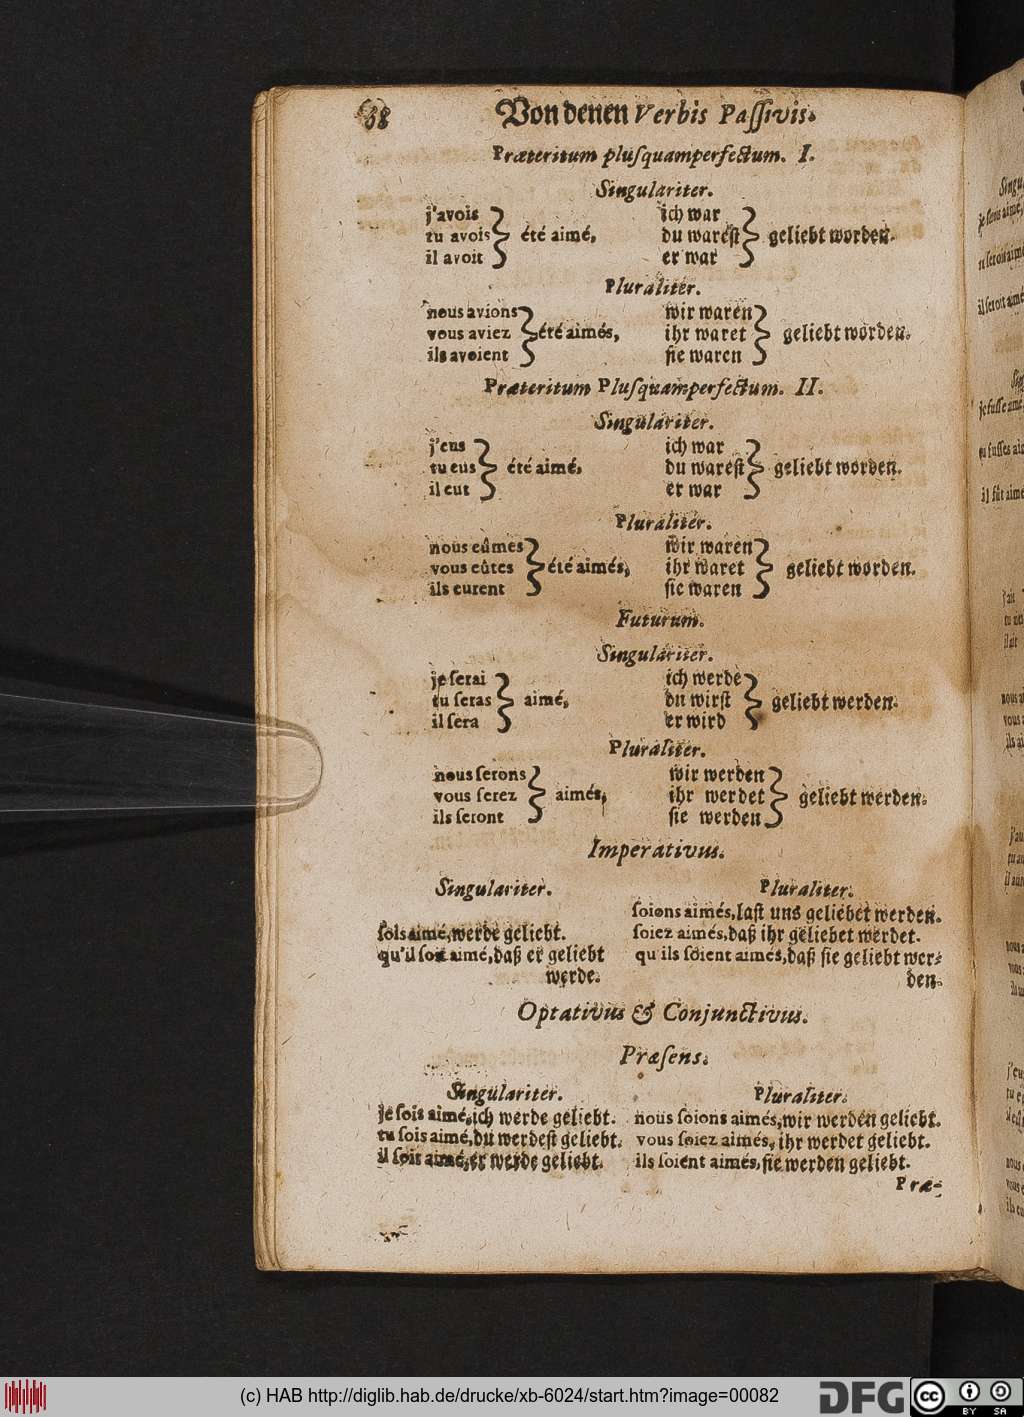 68 Von denen Verbis Paſſivis.
Præteritum pluſquamperfectum. I.
Singulariter.
j'avois ich war
tu avois été aimé, du wareſt geliebt worden.
il avoit er war
Pluraliter.
nous avions wir waren
vous aviez été aimés, ihr waret geliebt worden.
ils avoient ſie waren
Præteritum Pluſquamperfectum. II.
Singulariter.
j'eus ich war
tu eus été aimé, du wareſt geliebt worden.
il eut er war
Pluraliter.
nous eûmes wir waren
vous eûtes été aimés, ihr waret geliebt worden.
ils eurent ſie waren
Futurum.
Singulariter.
je ſerai ich werde
tu ſeras aimé, du wirſt geliebt werden.
il ſera er wird
Pluraliter.
nous ſerons wir werden
vous ſerez aimés, ihr werdet geliebt werden.
ils ſeront ſie werden
Imperativus.
Singulariter. Pluraliter.
ſoions aimés, laſt uns geliebet werden.
ſois aimé, werde geliebt. ſoiez aimés, daß ihr geliebet werdet.
qu'il ſoit aimé, daß er geliebt qu ils ſoient aimés, daß ſie geliebt wer-
werde. den.
Optativus & Conjunctivus.
Præſens.
Singulariter. Pluraliter.
je ſois aimé, ich werde geliebt. nous ſoions aimés, wir werden geliebt.
tu ſois aimé, du werdeſt geliebt. vous ſoiez aimés, ihr werdet geliebt.
il ſoit aimé, er werde geliebt. ils ſoient aimés, ſie werden geliebt.
Præ-
(c) HAB http://diglib.hab.de/drucke/xb-6024/start.htm?image=00082
DFG
cc BY SA